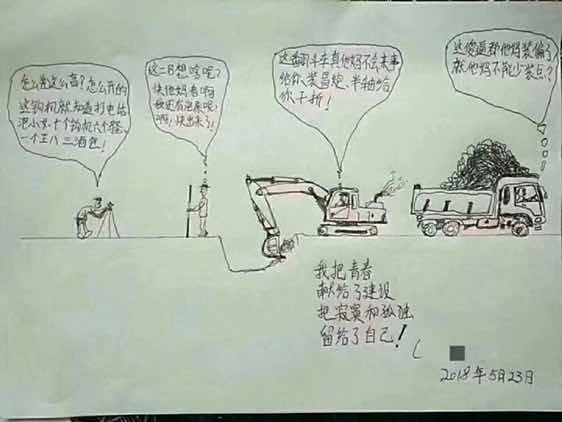 怎么挖这么高？怎么开的
这钩机就知道打电话
泡小妹十个钩机六个怪，
一个王八三酒包！
这二B想啥呢？
快他妈看啊
我还有活来呢
啊！快出来了！
这翻斗车真他妈不会来事
给你装冒炮，半轴给
你干折！
这傻逼都他妈装偏了
就他妈不能少装点？
我把青春
献给了建设
把寂寞和孤独
留给了自己！
2018年5月23日